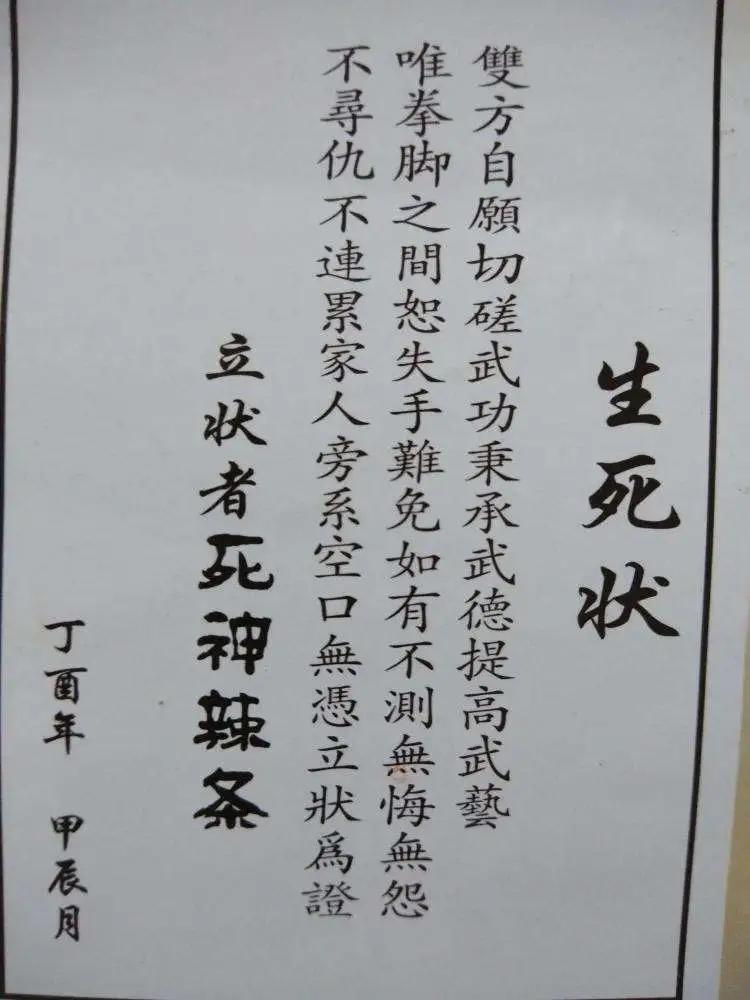 生死状
雙方自願切磋武功秉承武德提高武藝
唯拳脚之間恕失手難免如有不測無悔無怨
不尋仇不連累家人旁系空口無憑立狀爲證
立状者死神辣条
丁酉年 甲辰月